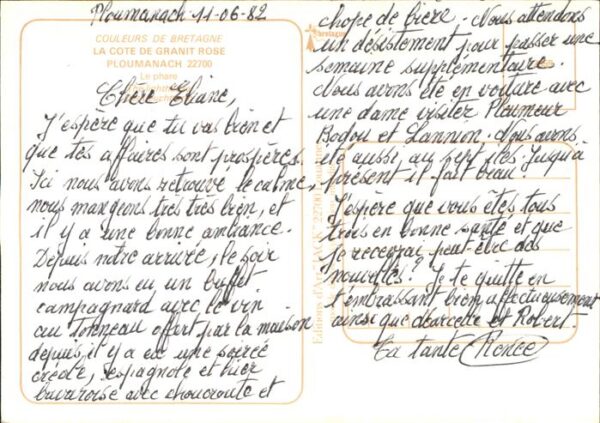 Ploumanach 11-06-82
COULEURS DE BRETAGNE
LA COTE DE GRANIT ROSE
PLOUMANACH 22700
Le phare
Chère Eliane,
J'espère que tu vas bien et
que tes affaires sont prospères.
Ici nous avons retrouvé le calme,
nous mangeons très très bien, et
il y a une bonne ambiance.
Depuis notre arrivée, le soir
nous avons eu un buffet
campagnard avec le vin
au tonneau offert par la maison
depuis, il y a eu une soirée
créole, espagnole et hier
bavaroise avec choucroute et
chope de bière. Nous attendons
un désistement pour passer une
semaine supplémentaire.
Nous avons été en voiture avec
une dame visiter Pleumeur
Bodou et Lannion. Nous avons
été aussi, au sept iles. Jusqu'à
présent il fait beau.
J'espère que vous êtes tous
trois en bonne santé et que
je recevrai peut être des
nouvelles. Je te quitte en
t'embrassant bien affectueusement
ainsi que Marcelle et Robert.
Ta tante Renée
bretagne